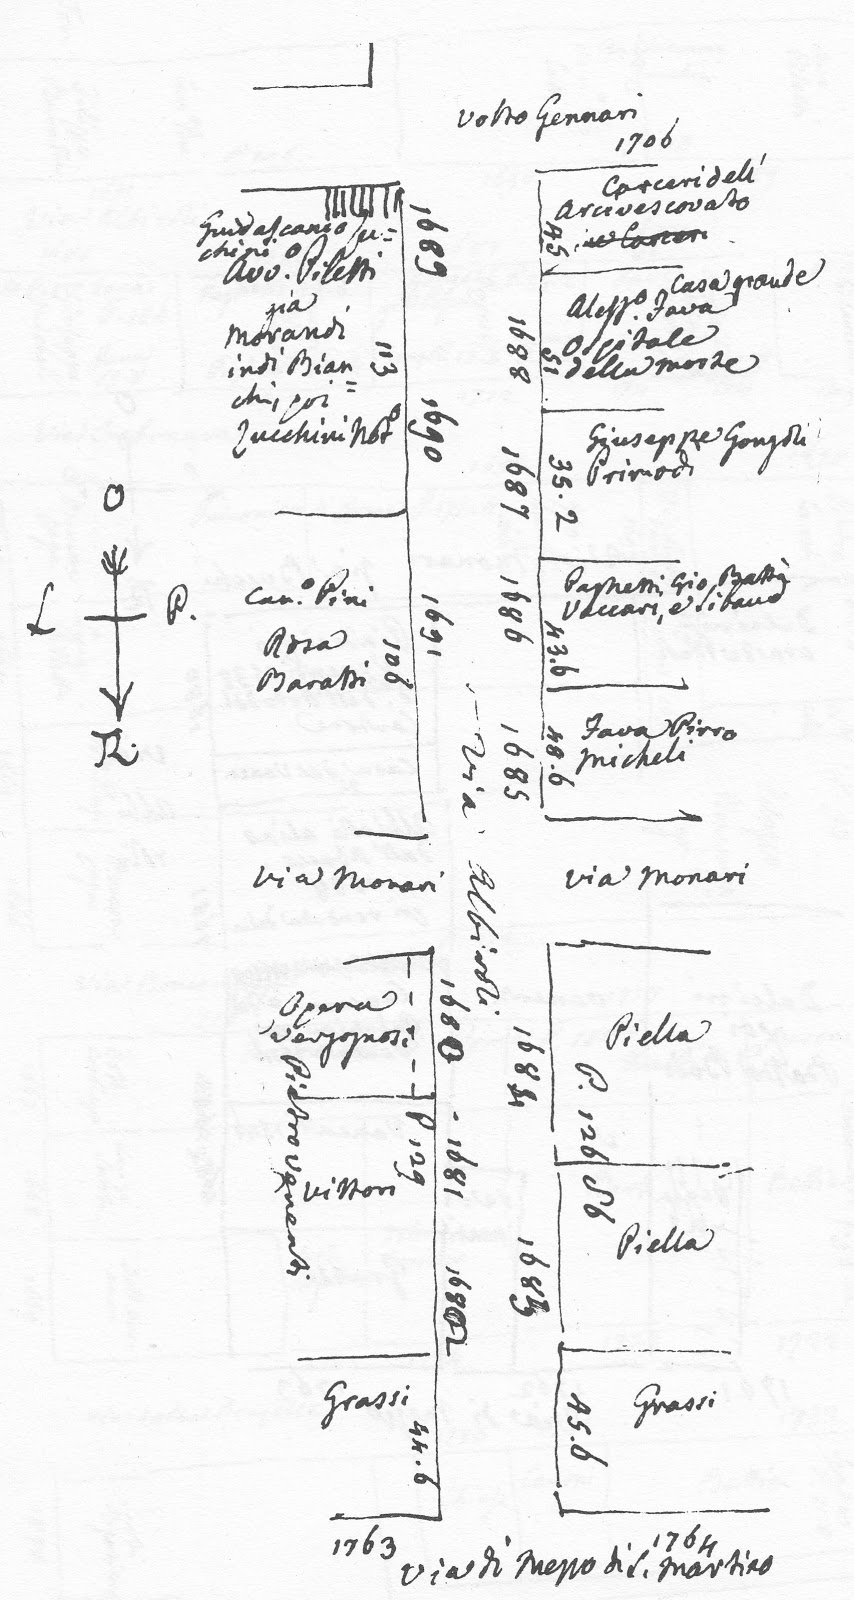 Volto Gennari
1706
Carceri dell'
Arcivescovato
45
1689
Avv. Piletti
già
Morandi
indi Bian
chi, poi =
Zucchini Not.º
113
1690
Casa grande
Aless.º Fava
Ospitale
della morte
1688
51
Giuseppe
Primodì
1687
35.2
O
L
P.
Can.º Pini
Rosa
Baratti
106
1691
Paghetti, Gio. Batta
Vaccari, e
1686
43.6
Fava Pirro
Micheli
1685
48.6
Via Albiroli
Via Monari
Via Monari
Opera
Vergognosi
1680
Piella
1684
P. 126
Pietro
Vittori
P. 129
1681
56
Piella
1683
1682
Grassi
44.6
Grassi
45.6
1763
1764
Via di Mezzo di S. Martino